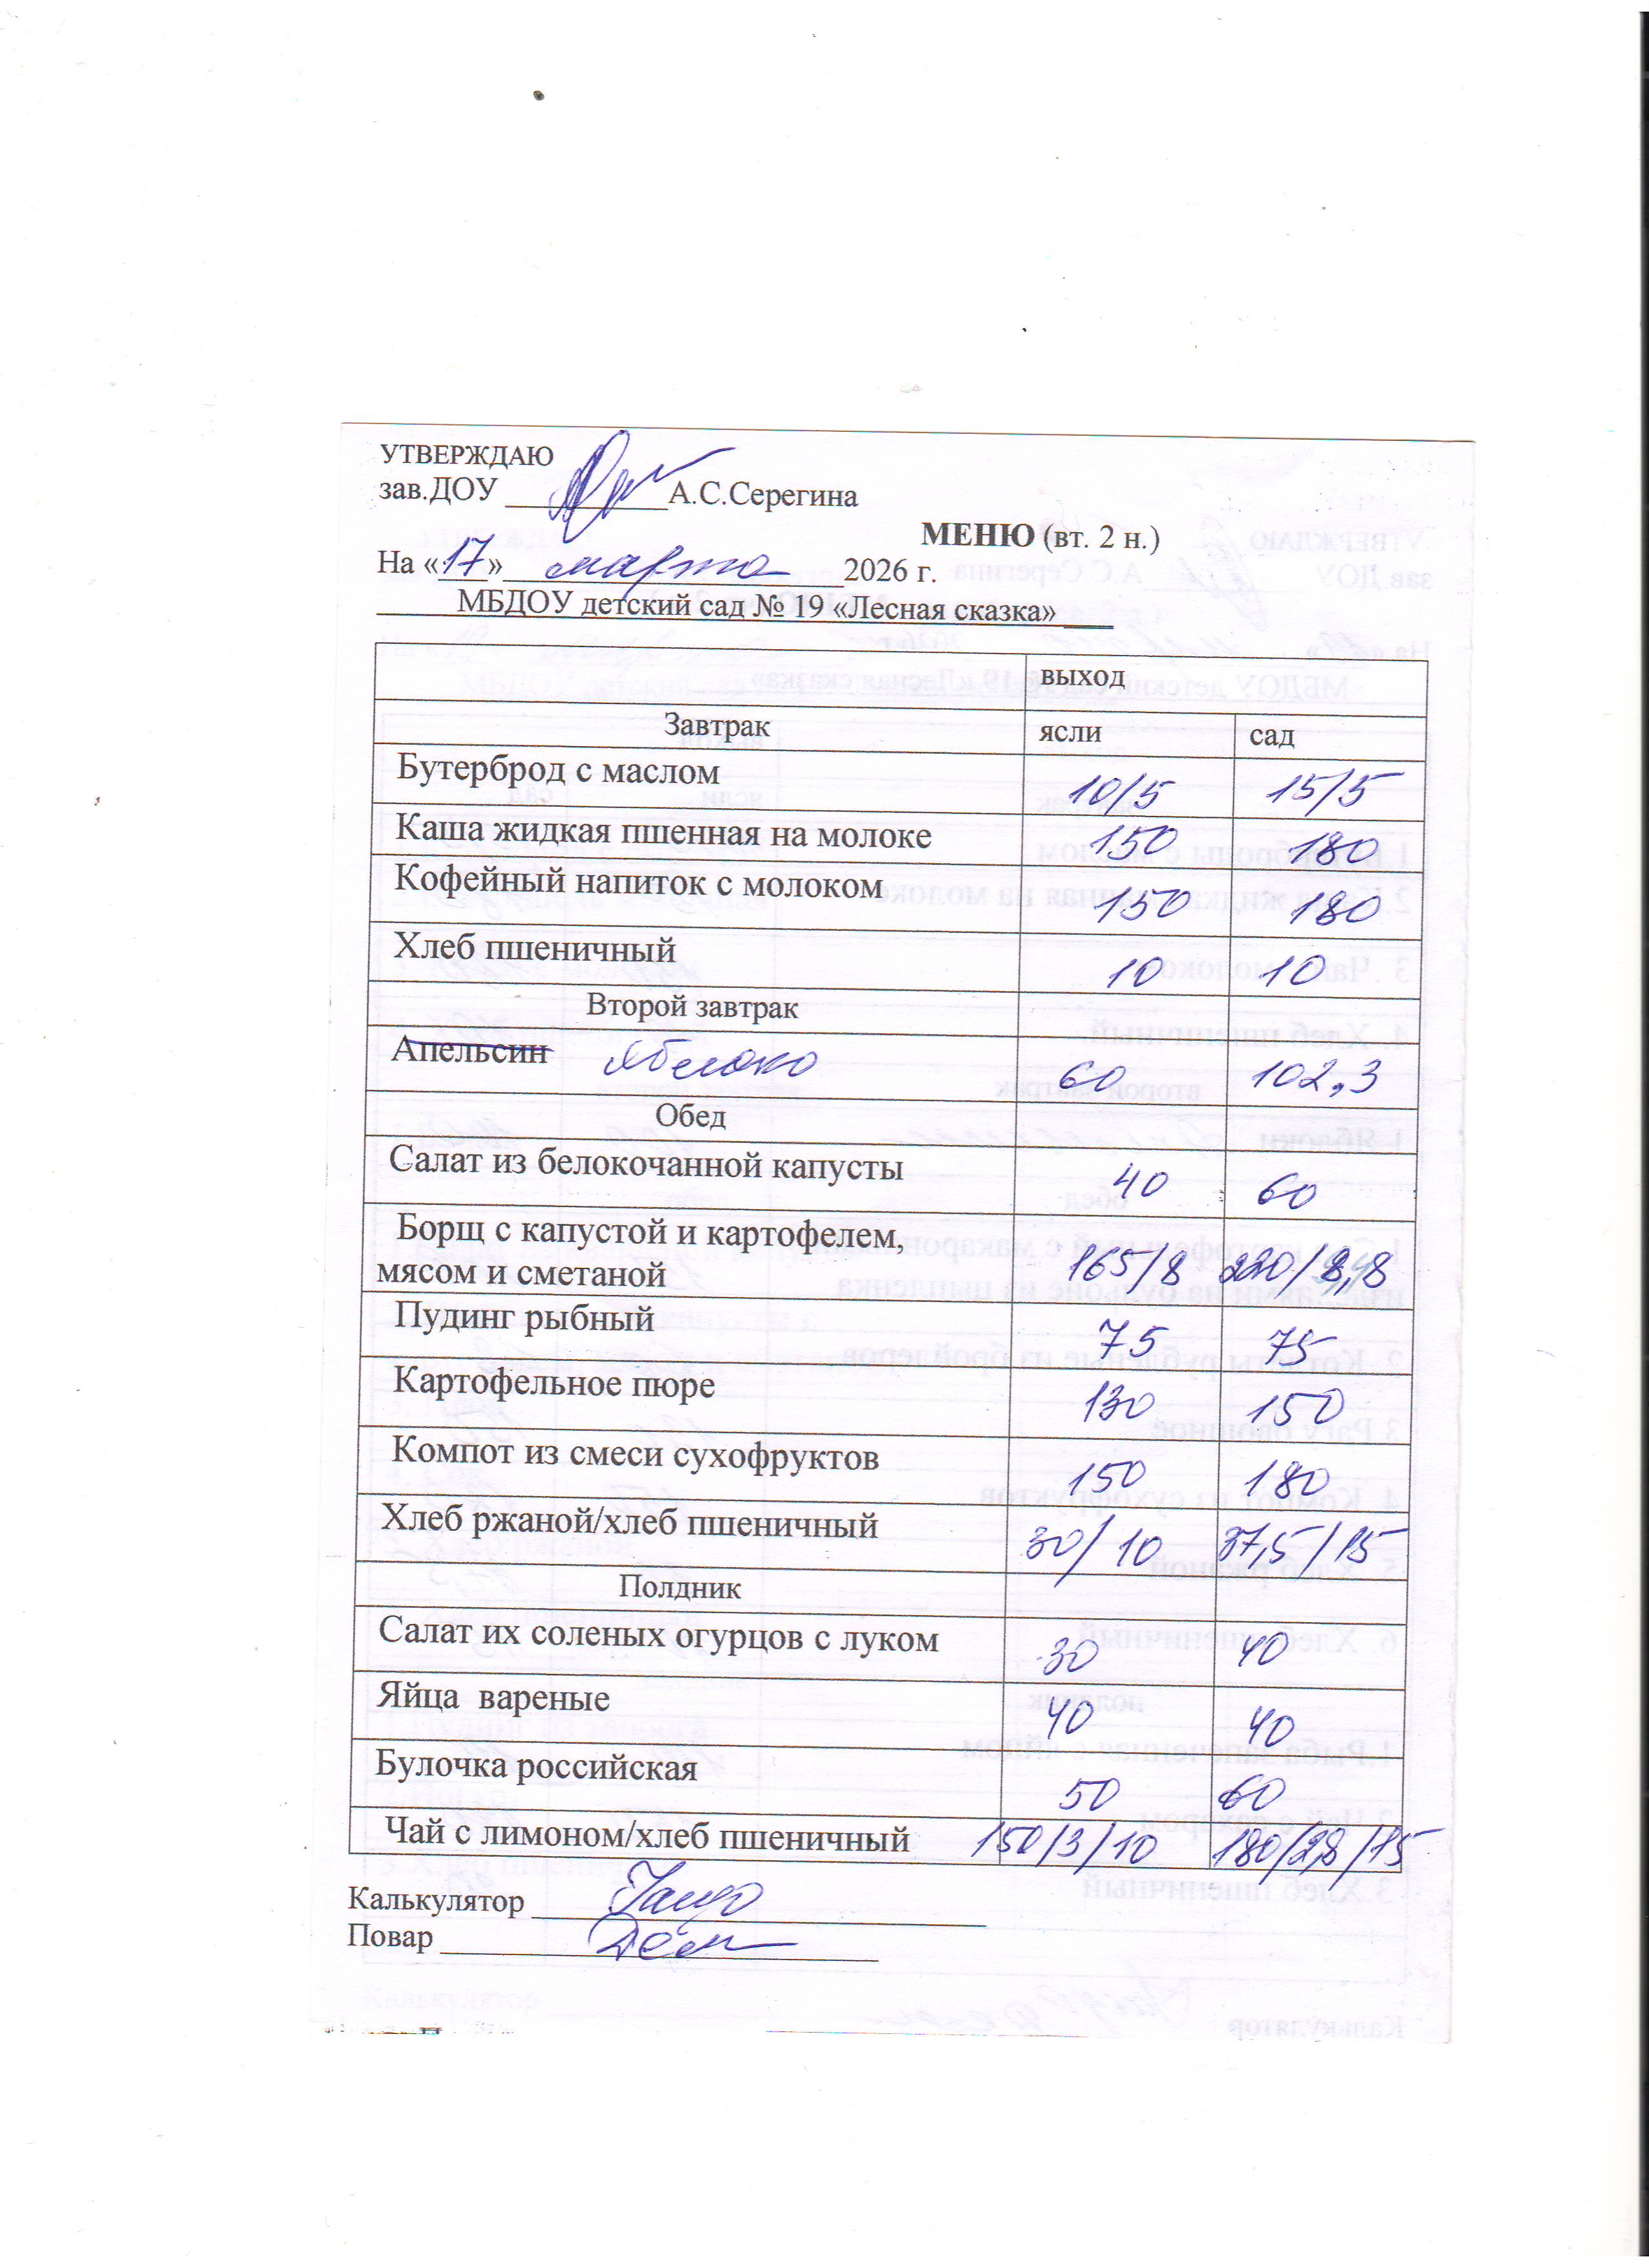 УТВЕРЖДАЮ
зав.ДОУ __________А.С.Серегина
МЕНЮ (вт. 2 н.)
На «17» марта 2026 г.
МБДОУ детский сад № 19 «Лесная сказка»
выход
Завтрак ясли сад
Бутерброд с маслом 10/5 15/5
Каша жидкая пшенная на молоке 150 180
Кофейный напиток с молоком 150 180
Хлеб пшеничный 10 10
Второй завтрак
Апельсин Яблоко 60 102,3
Обед
Салат из белокочанной капусты 40 60
Борщ с капустой и картофелем, 
мясом и сметаной 165/8 220/8,8
Пудинг рыбный 75 75
Картофельное пюре 130 150
Компот из смеси сухофруктов 150 180
Хлеб ржаной/хлеб пшеничный 30/10 37,5/15
Полдник
Салат их соленых огурцов с луком 30 40
Яйца вареные 40 40
Булочка российская 50 60
Чай с лимоном/хлеб пшеничный 150/3/10 180/2,8/15
Калькулятор
Повар